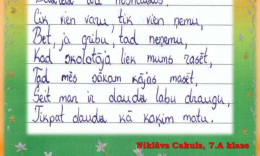 Cik vien varu, tik vien ņemu,
Bet, ja gribu, tad neņemu,
Kad ekoloģija liek mums rasēt,
Tad mēs sākam kājas masēt,
Šeit man ir daudz labu draugu,
Tikpat daudz kā kaķim matu.
Niklāvs Cakuls, 7.A klase